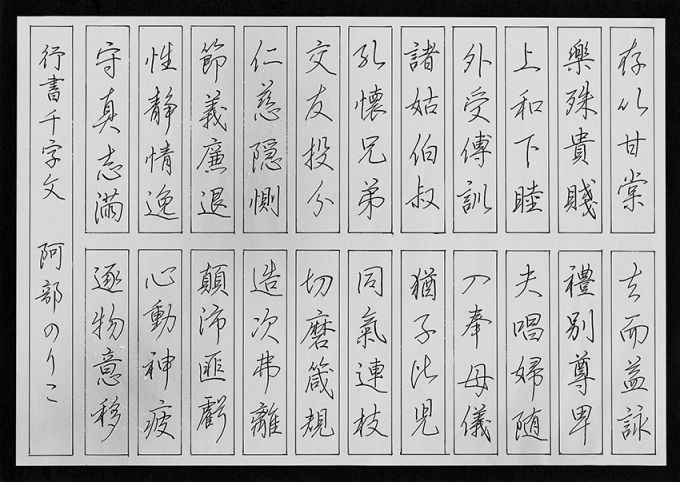 存以甘棠
去而益詠
樂殊貴賤
禮別尊卑
上和下睦
夫唱婦随
外受傅訓
入奉母儀
諸姑伯叔
猶子比児
孔懐兄弟
同氣連枝
交友投分
切磨箴規
仁慈隠惻
造次弗離
節義廉退
顛沛匪虧
性静情逸
心動神疲
守真志満
逐物意移
行書千字文 阿部のりこ